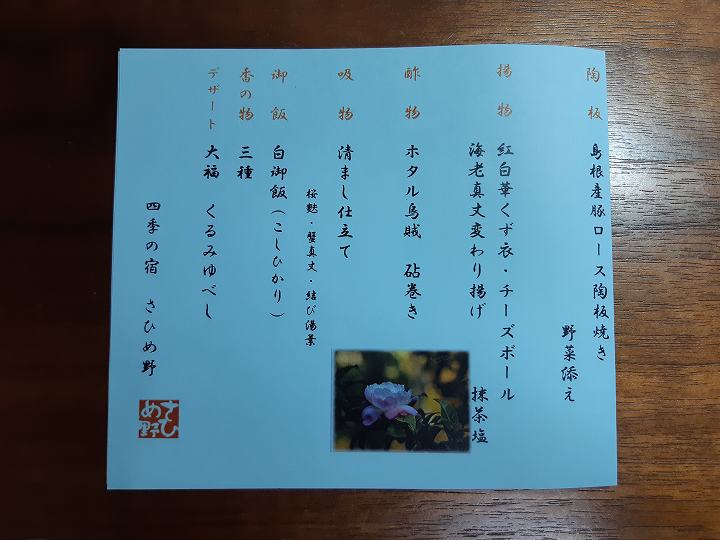 陶板 島根産豚ロース陶板焼き
野菜添え
揚物 紅白華くず衣・チーズボール
海老真丈変わり揚げ 抹茶塩
酢物 ホタル烏賊 砧巻き
吸物 清まし仕立て
桜麩・蟹真丈・結び湯葉
御飯 白御飯(こしひかり)
香の物 三種
デザート 大福 くるみゆべし
四季の宿 さひめ野
さひめ野